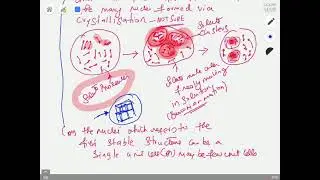 As many nuclei formed via
Crystallisation - NOT SURE
Clusters
Start Processes
State nuclei are
freely moving
in Solution
(Brownian motion)
the nuclei which represents the
first stable structures can be a
Single unit cell (or) may be few unit cells